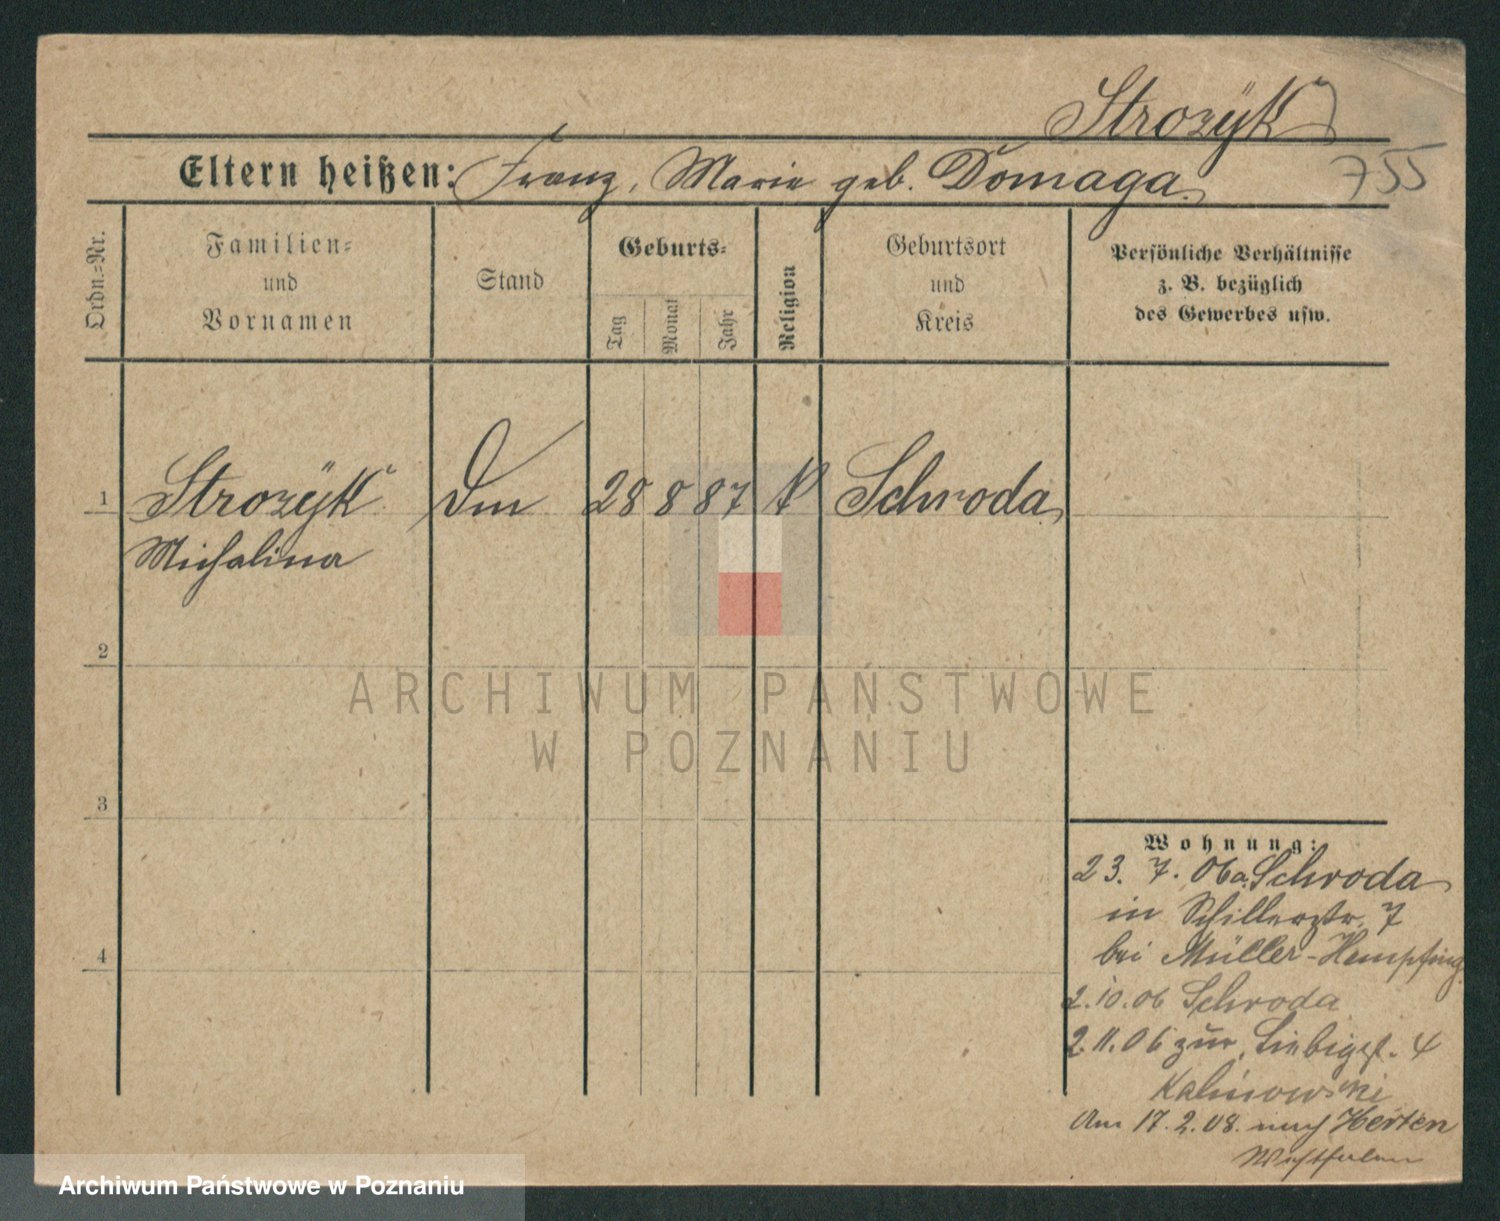 Strozÿk
Eltern heißen: Franz, Marie geb. Domaga.
755
Ordn.=Nr.
Familien=
und
Vornamen
Stand
Geburts=
Tag
Monat
Jahr
Religion
Geburtsort
und
Kreis
Persönliche Verhältnisse
z. B. bezüglich
des Gewerbes usw.
1 Strozÿk 28 8 87 K Schroda
Michalina
2
3
4
Wohnung:
23. 7. 06 a. Schroda
in Schillerstr. 7
bei Müller-Hempfing
2.10.06 Schroda
2.11.06 zur. Liebigst. 4
Kalinowski
Am 17.2.08. nach Herten
Westfalen
ARCHIWUM PAŃSTWOWE
W POZNANIU
Archiwum Państwowe w Poznaniu